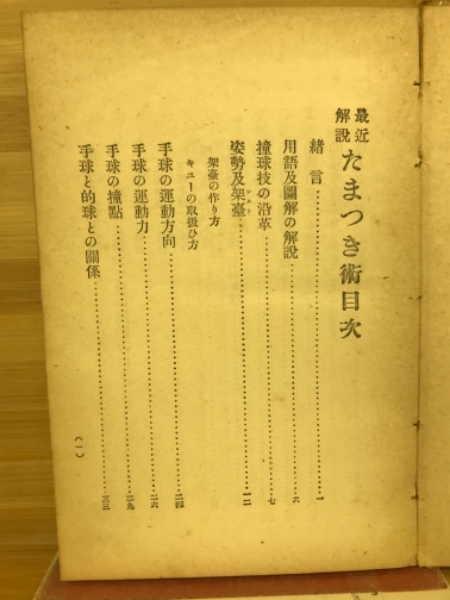 最近
解說
たまつき術目次
緒言……一
用語及圖解の解說……六
撞球技の沿革……七
姿勢及架臺……一二
架臺の作り方
キユーの取扱ひ方
手球の運動方向……二四
手球の運動力……二六
手球の撞點……二九
手球と的球との關係……三三
(一)